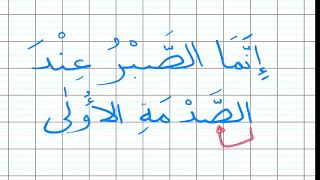 إِنَّمَا الصَّبْرُ عِنْدَ
الصَّدْمَةِ الأُوْلَى